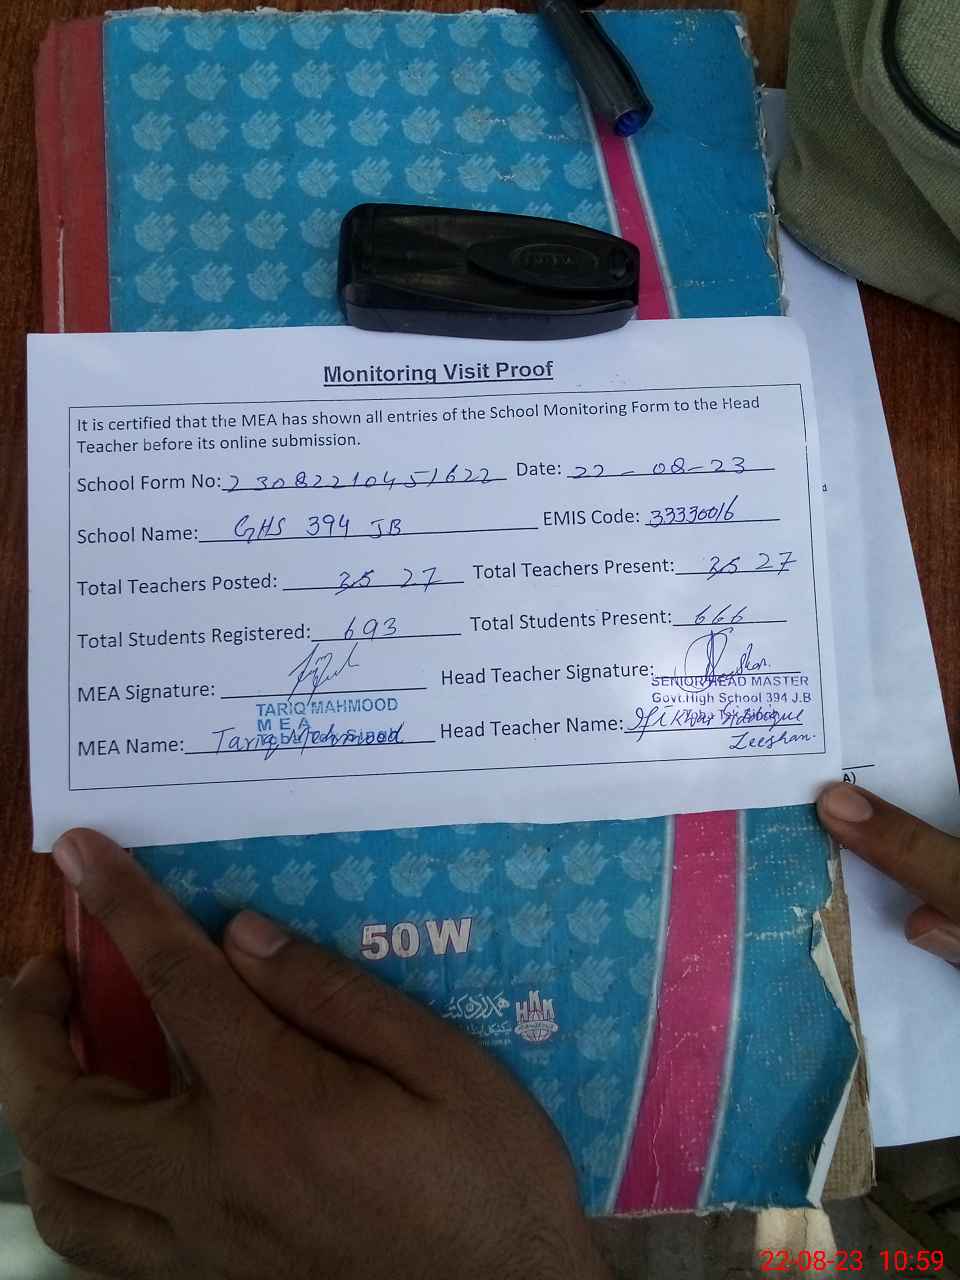 Monitoring Visit Proof
It is certified that the MEA has shown all entries of the School Monitoring Form to the Head
Teacher before its online submission.
School Form No: 230822104451622 Date: 22-08-23
School Name: GHS 394 JB EMIS Code: 33330016
Total Teachers Posted: 35 27 Total Teachers Present: 35 27
Total Students Registered: 693 Total Students Present: 666
MEA Signature: Head Teacher Signature:
SENIOR HEAD MASTER
TARIQ MAHMOOD
Govt.High School 394 J.B
M E A
MEA Name: Tariq Mehmood Head Teacher Name:
Zeeshan.
A)
50W
HKK
22-08-23 10:59